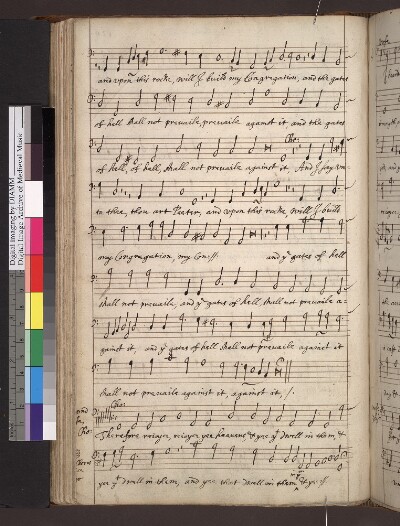 and upon this rocke, will I build my Congregation, and the gates
of hell shall not prevaile, prevaile against it and the gates
Cho:
of hell, of hell, shall not prevaile against it. And I say un-
to thee, thou art Peeter, and upon this rocke will I build
my Congregation, my Con:// and ye gates of hell
shall not prevaile, and ye gates of hell, shall not prevaile a-
gainst it, and ye gates of hell shall not prevaile against it
shall not prevaile against it, against it, /.
Cho:
Therefore rejoyce, rejoyce yee heavens & yee yt dwell in them, &
yee yt dwell in them, and yee that dwell in them & yee yt
Digital Imaging by DIAMM
Digital Image Archive of Medieval Music